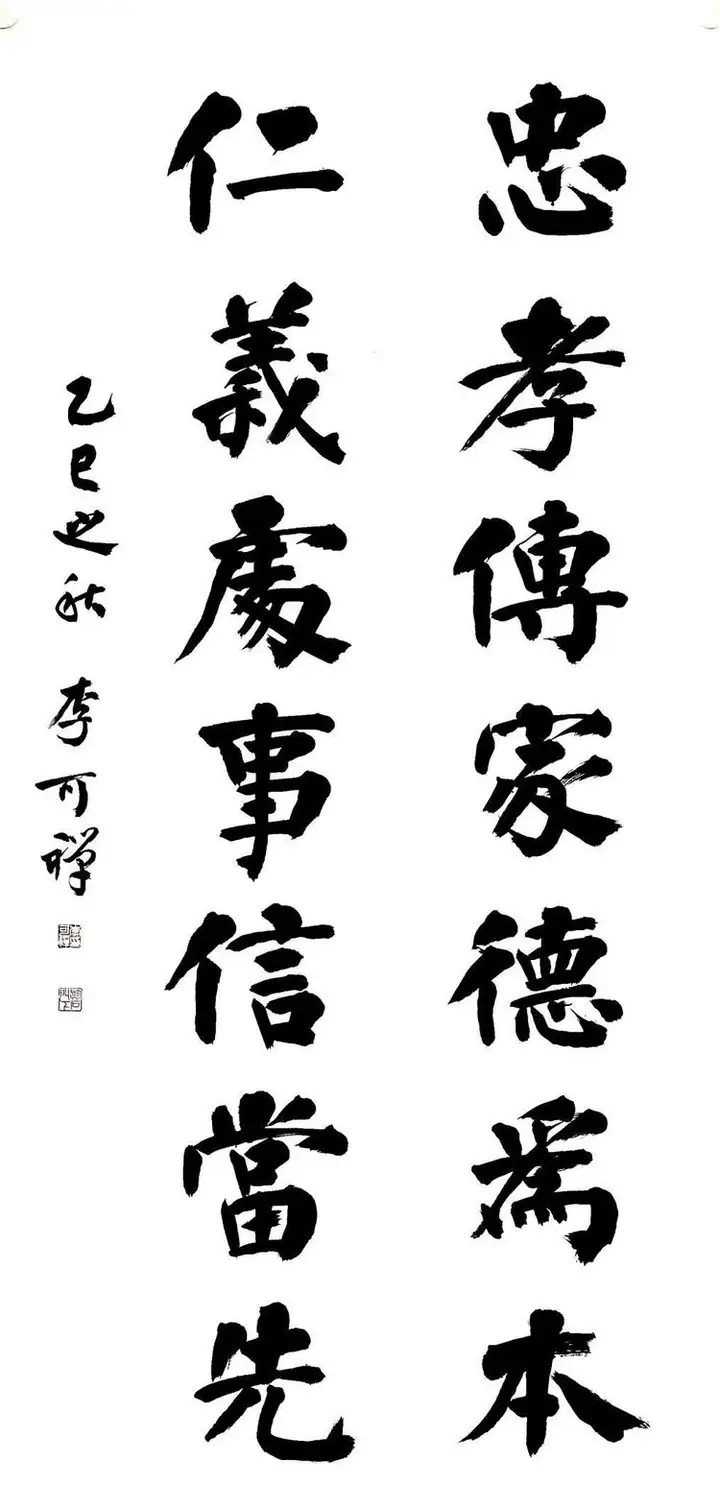 忠孝傳家德爲本
仁義處事信當先
乙巳之秋 李可禅